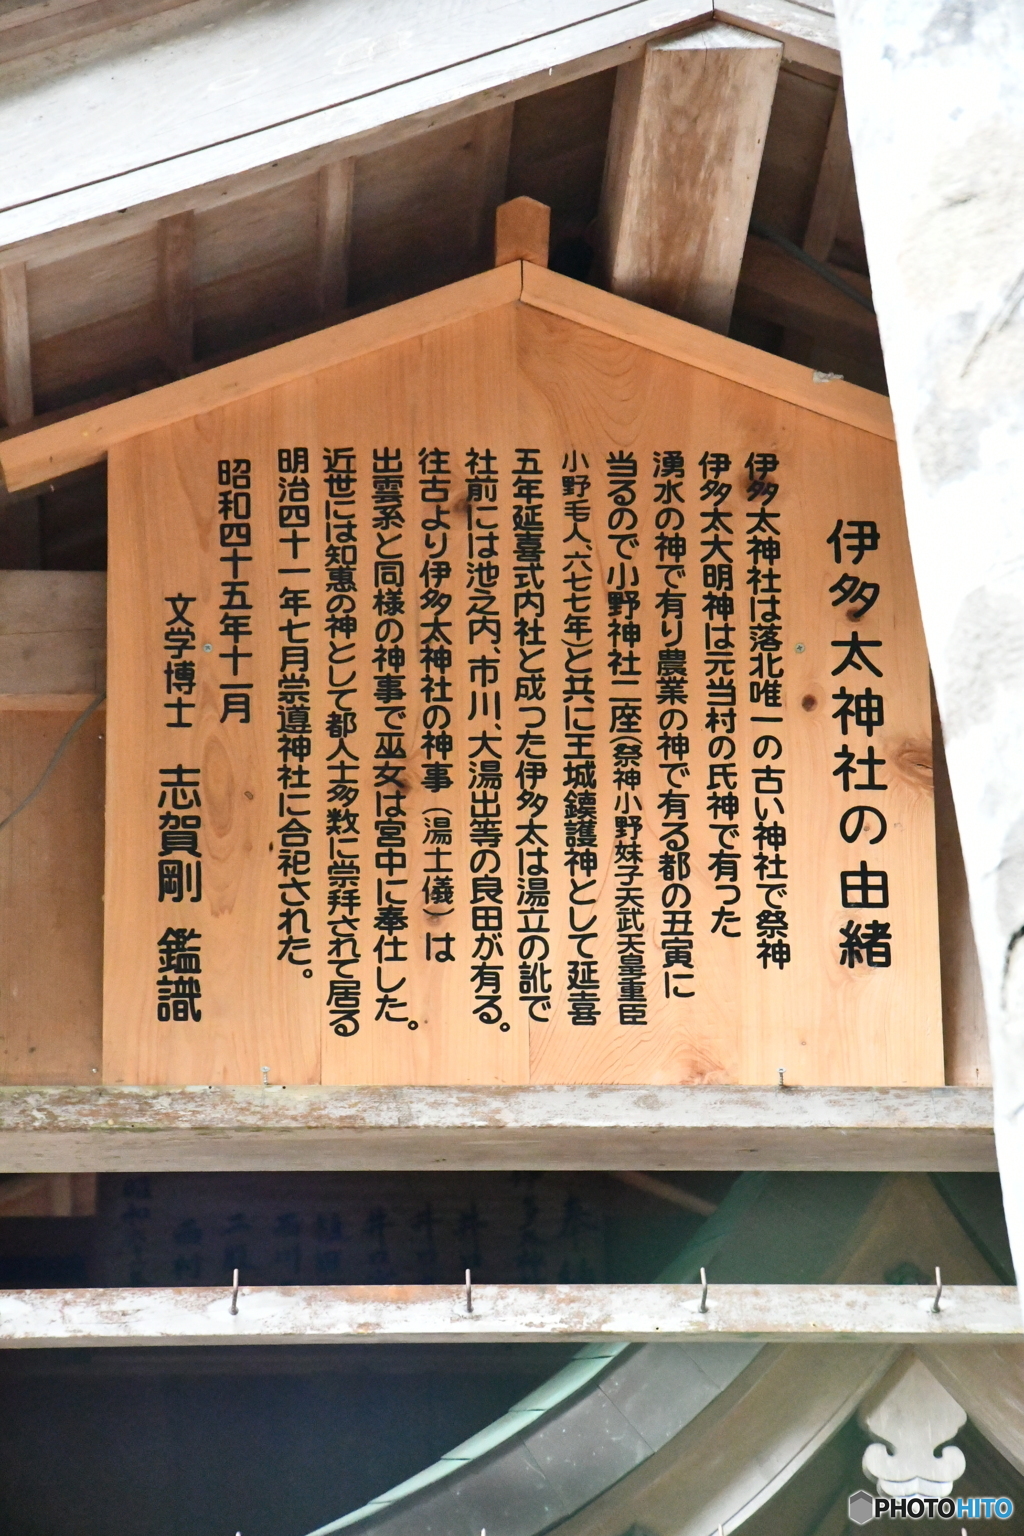 伊多太神社の由緒
伊多太神社は落北唯一の古い神社で祭神
伊多太大明神は元当村の氏神で有った
湧水の神で有り農業の神で有る都の丑寅に
当るので小野神社二座(祭神小野妹子天武天皇重臣
小野毛人、六七七年)と共に王城鎮護神として延喜
五年延喜式内社と成った伊多太は湯立の訛で
社前には池之内、市川、大湯出等の良田が有る。
往古より伊多太神社の神事(湯土儀)は
出雲系と同様の神事で巫女は宮中に奉仕した。
近世には知恵の神として都人士多数に崇拜されて居る
明治四十一年七月崇導神社に合祀された。
昭和四十五年十一月
文学博士 志賀剛 鑑識
PHOTOHITO